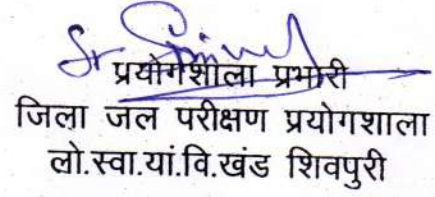 प्रयोगशाला प्रभारी
जिला जल परीक्षण प्रयोगशाला
लो.स्वा.यां.वि.खंड शिवपुरी